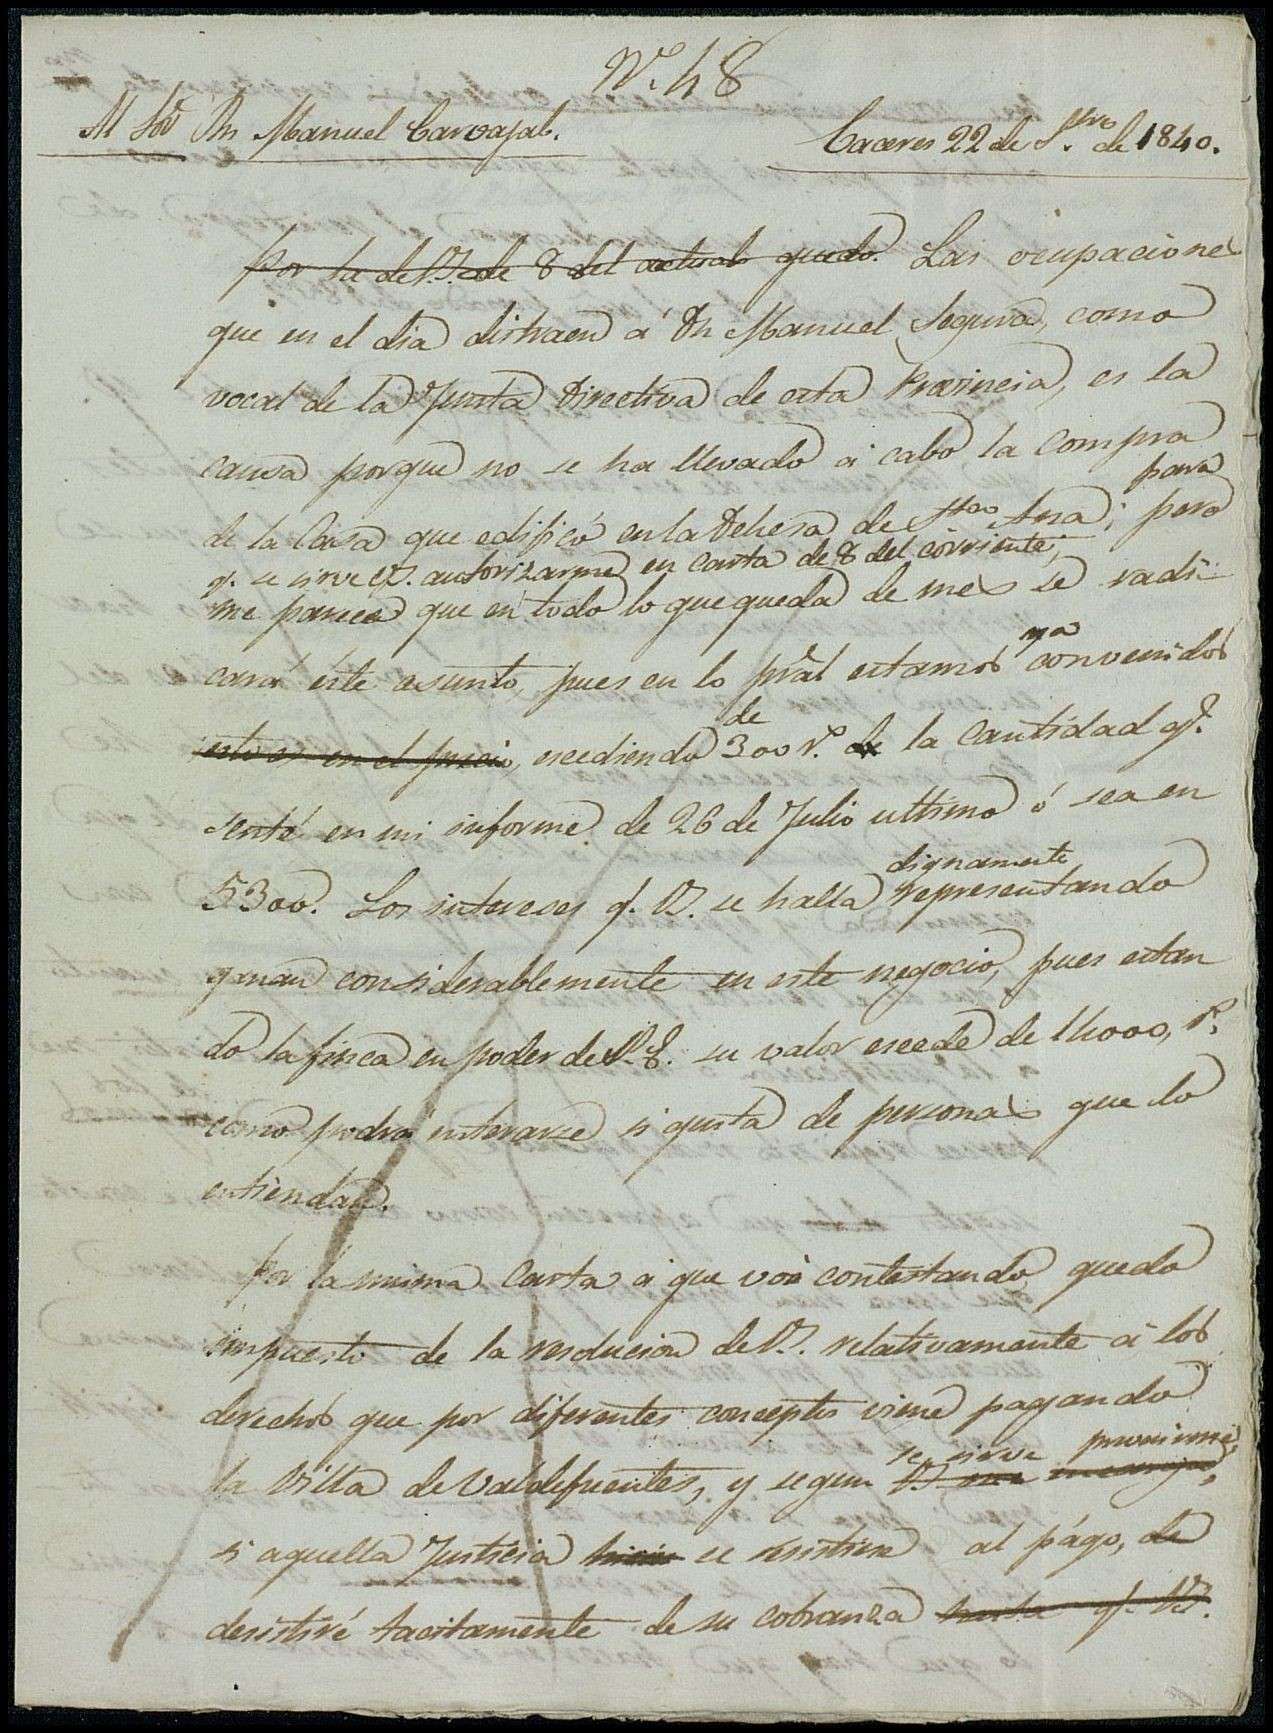 Nº. 48
Al Sor Dn Manuel Carvajal.
Caceres 22 de Sbre. de 1840.
Por la de V. de 8 del actual quedo. Las ocupaciones
que en el dia distraen á Dn Manuel Segura, como
vocal de la Junta Directiva de esta Provincia, es la
causa porque no se ha llevado á cabo la compra
para
de la Casa que edificó en la Dehesa de Sta Ana; pero
q. se sirve V. autorizarme en carta de 8 del corriente;
me parece que en todo lo que queda de mes se radi
ya
cará este asunto, pues en lo pral estamos convenidos
de
esto es en el precio, escediendo 300 rs. de la cantidad qe.
senté en mi informe de 26 de Julio ultimo ó sea en
dignamente
5300. Los intereses q. V. se halla representando
ganan considerablemente en este negocio, pues estan
do la finca en poder de S. E. su valor escede de 14000, rs.
como podrá enterarse si gusta de personas que lo
entiendan.
Por la misma Carta á que voi contestando, quedo
impuesto de la resolucion de V. relativamente á los
derechos que por diferentes conceptos viene pagando
se sirve prevenirme
la Villa de Valdefuentes, y segun V. me encarga,
si aquella Justicia se resistiese al págo, de
desistiré tacitamente de su cobranza hasta q. V.